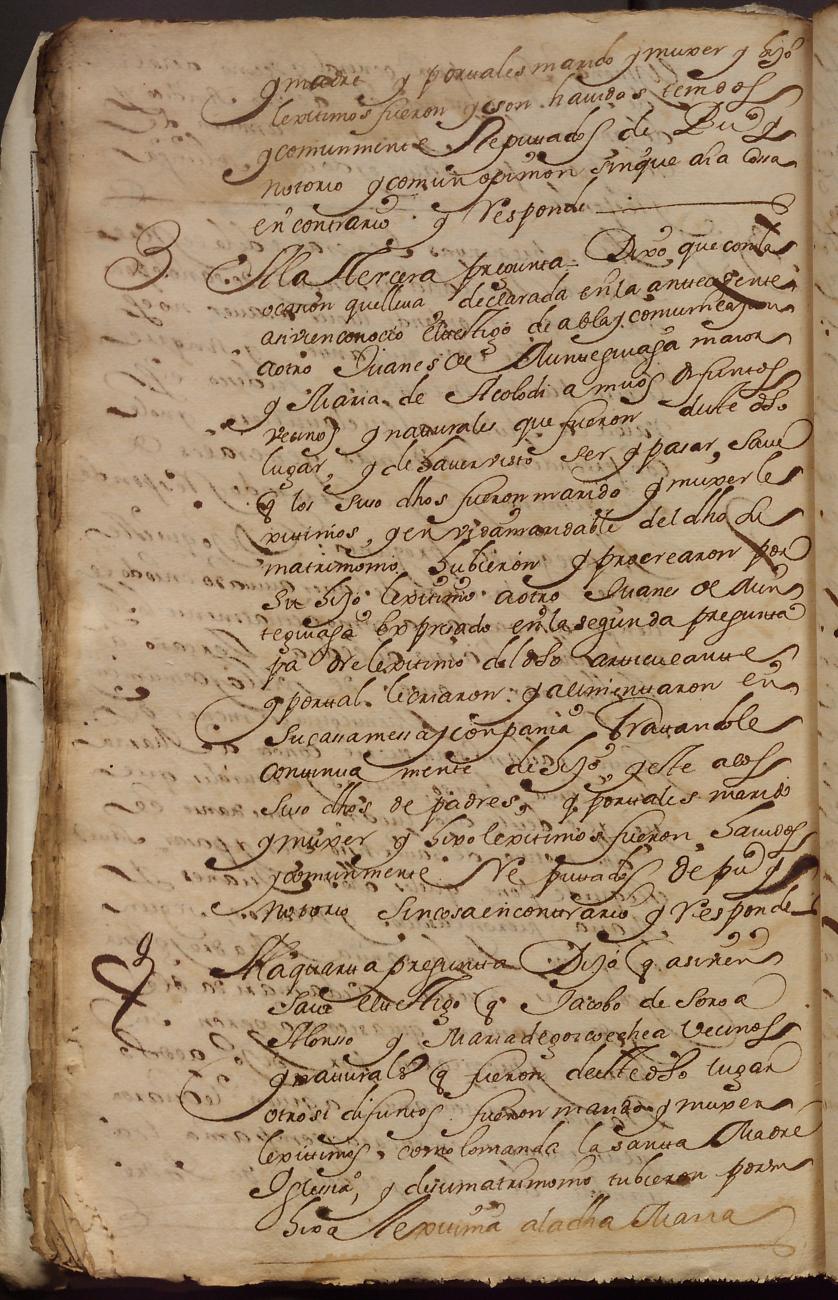 y madre y por tales marido y muxer y hijo
lexitimos fueron y son havidos tenidos
y comunmente Reputados de Puco y
notorio y comun opinion sin que aia cossa
en contrario y Responde
3 A la Tercera pregunta Dixo que con la
ocasion que lleva declarada en la antezedente
asi vien conocio el testigo de abla y comunicazion
a otro Juanes de Muntegui asa maior
y Maria de Acolodi amvos difuntos
vecinos y naturales que fueron deste dho
lugar, y de haver visto ser y pasar, save
q los suso dhos fueron marido y muxer le
xitimos, y en vida maridable del dho su
matrimonio hubieron y procrearon por
su hijo lexitimo a otro Juanes de Mun
tegui asa expresado en la segunda pregunta
padre lexitimo del dho articulante
y por tal le criaron y alimentaron en
su casa mesa y compania Tratandole
continuamente de hijo, y este a los
suso dhos de padres, y por tales marido
y muxer y hixo lexitimos fueron havidos
y comunmente Reputados de puco y
notorio sin cosa en contrario y Responde
4 A la quarta pregunta Dijo q asi vien
save el testigo q Jacobo de Soroa
Alonso y Maria de goicoechea vecinos
y naturales q fueron deste dho lugar
otrosi difuntos fueron marido y muxer
lexitimos, como lo manda la santa Madre
Iglesia, y de su matrimonio tubieron por su
hixa lexitima a la dha Maria